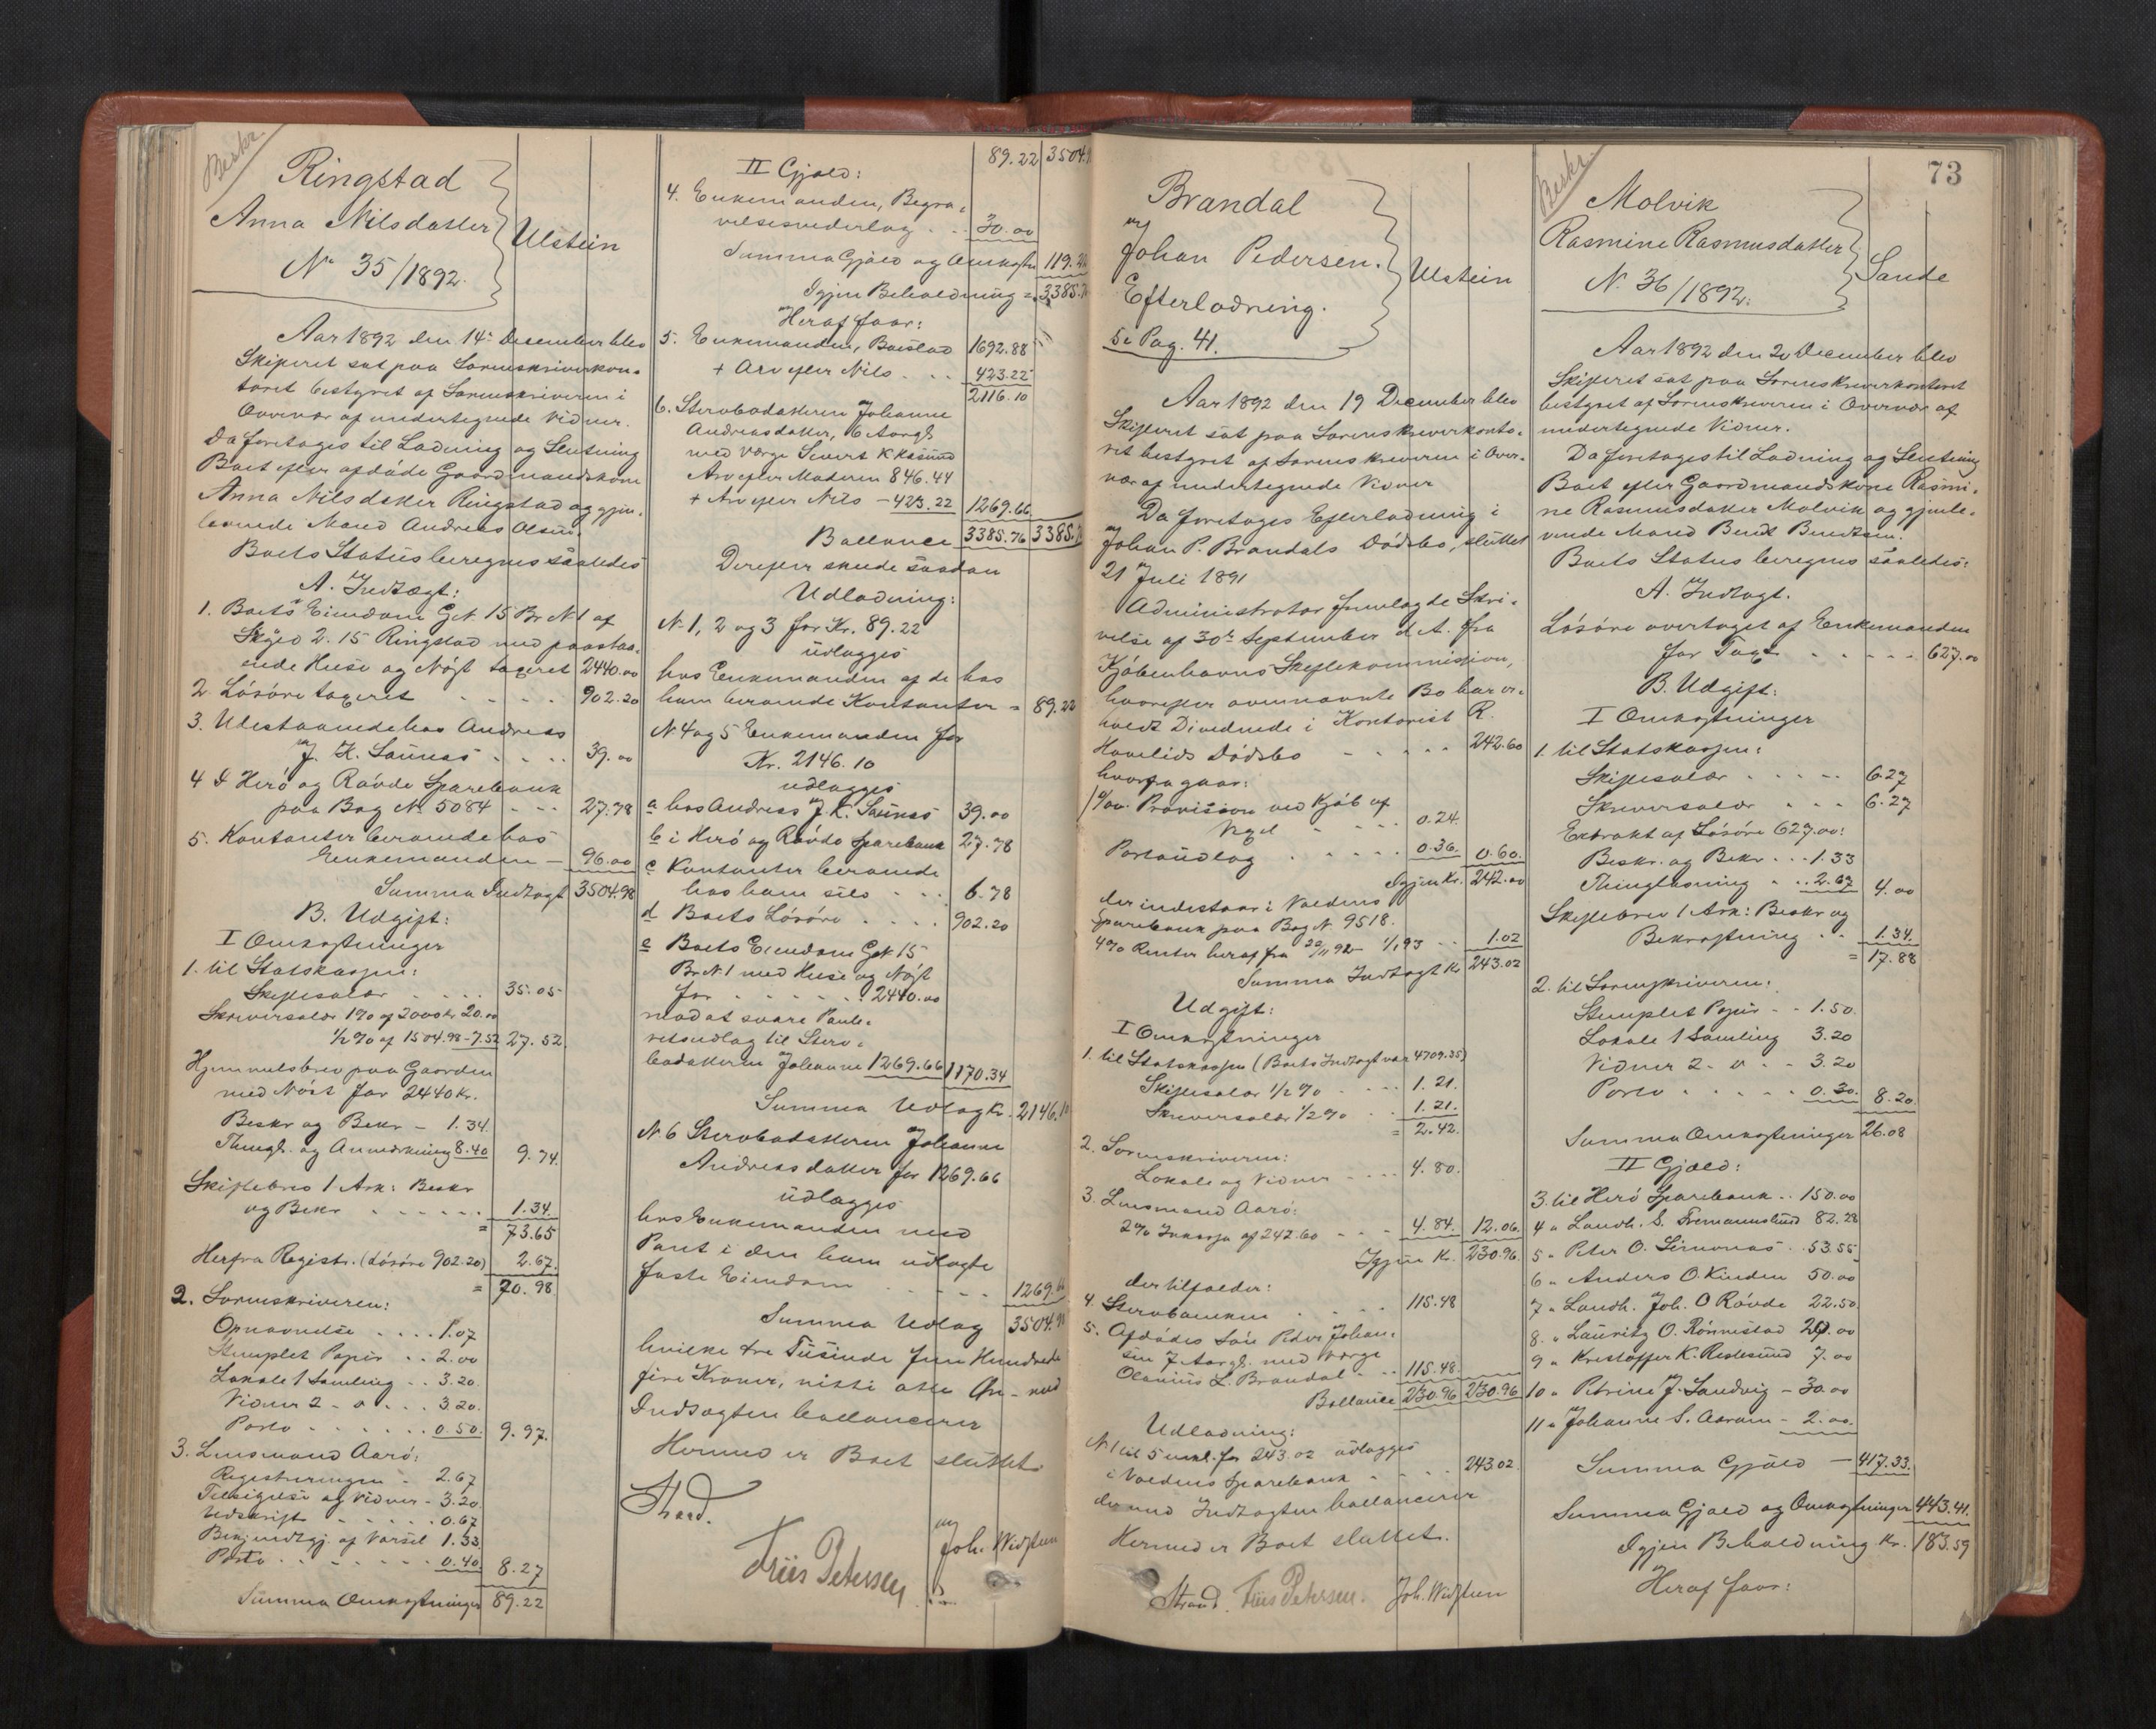 Beskr.
Ringstad
Anna Nilsdatter
Ulstein
No 35/1892.
Aar 1892 den 14de Desember blev
Skifteret sat paa Sorenskriverkon-
toret bestyret af Sorenskriveren i
Overvær af undertegnede Vidner.
Da foretages til Lodning og Slutning
Boet efter afdøde Gaardmandskone
Anna Nilsdatter Ringstad og gjen-
levende Mand Andreas Olsen.
Boets Status beregnes saaledes
A. Indtægt:
1. Boets Eiendom G.N. 15 Br.N. 1 af
Skyld 2.15 Ringstad med paastaa-
ende Huse og Nøst taxeret 2440.00
2. Løsøre taxeret 902.20
3. Udestaaende hos Andreas
J. K. Saunes 39.00
4 I Herø og Røvde Sparebank
paa Bog No. 5084 27.78
5. Kontanter beroende hos
Enkemanden 96.00
Summa Indtægt 3504.98
B. Udgift:
I Omkostninger
1. til Statskassen:
Skiftesalær 35.05
Skriversalær 1% af 2000 kr 20.00
1/2 % af 1504.98 - 7.52 27.52
Hjemmelsbrev paa Gaarden
med Nøst for 2440 kr.
Beskr og Bekr - 1.34.
Thingl. og Anmerkning 8.40 9.74.
Skiftebrev 1 Ark: Beskr
og Bekr 1.34.
= 73.65
Herfra Registr. (Løsøre 902.20) 2.67.
= 70.98
2. Sorenskriveren:
Opnævnelse 1.07
Stemplet Papir 2.00
Lokale 1 Samling 3.20.
Vidner 2 - o 3.20.
Porto 0.50. 9.97.
3. Lensmand Aarø:
Registreringen 2.67
Tilsigelse og Vidner - 3.20.
Udskrift 0.67
Bekjendtgj. af Varsel 1.33
Porto 0.40 8.27
Summa Omkostninger 89.22
89.22 3504.
II Gjæld:
4. Enkemanden, Begra-
velsesvederlag 30.00
Summa Gjæld og Omkostn 119.
Igjen Beholdning = 3385.
Heraf faar:
5. Enkemanden, Boeslod 1692.88
+ Arv efter Nils 423.22
2116.10
6. Stervbodatteren Johanne
Andreasdatter, 6 Aargl.
med Værge Sivert K
Arv efter Moderen 846.44
+ Arv efter Nils - 423.22 1269.66.
Ballance 3385.76 3385.
Derefter skede saadan
Udlodning:
N. 1, 2 og 3 for Kr. 89.22
udlægges
hos Enkemanden af de hos
ham beroende Kontanter = 89.22
N. 4 og 5 Enkemanden for
Kr. 2146.10
udlægges
a hos Andreas J. K. Saunes 39.00
b i Herø og Røvde Sparebank 27.78
c Kontanter beroende
hos ham selv 6.78
d Boets Løsøre 902.20
e Boets Eiendom G.N. 15
Br.N. 1 med Huse og Nøst
for 2440.00
mod at svare Pante-
retsudlæg til Sterv-
bodatteren Johanne 1269.66 1170.34
Summa Udlæg kr. 2146.10
N. 6 Stervbodatteren Johanne
Andreasdatter for 1269.66
udlægges
hos Enkemanden med
Pant i den ham udlagte
faste Eiendom 1269.
Summa Udlæg 3504.
hvilke tre Tusinde fem Hundrede
fire Kroner, nitti otte Øre med
Indtægten ballancerer
Hermed er Boet sluttet.
Strand.
Friis Petersen
Joh. Widsteen
Brandal
Johan Pedersen.
Efterlodning.
Ulstein
Se Pag. 41.
Aar 1892 den 19 December blev
Skifteret sat paa Sorenskriverkonto-
ret bestyret af Sorenskriveren i Over-
vær af undertegnede Vidner
Da foretages Efterlodning i
Johan P. Brandals Dødsbo, sluttet
21 Juli 1891
Administrator fremlagde Skri-
velse af 30te September d. A. fra
Kjøbenhavns Skiftekommission,
hvorefter ovennævnte Bo har er-
holdt Dividende i Kontorist R.
Hovelids Dødsbo 242.60
hvorfra gaar:
1 o/oo Provision ved Kjøb af
Vexel 0.24.
Portoudlæg 0.36. 0.60.
Igjen Kr. 242.00
der indestaar i Voldens
Sparebank paa Bog N. 9518.
4% Renter heraf fra 22/11 92 - 1/1 93 1.02
Summa Indtægt Kr 243.02
Udgift:
I Omkostninger
1. til Statskassen (Boets Indtægt var 4709.35)
Skiftesalær 1/2 % 1.21.
Skriversalær 1/2 % 1.21.
= 2.42.
2. Sorenskriveren:
Lokale og Vidner 4.80.
3. Lensmand Aarø:
2% Inkasso af 242.60 4.84. 12.06.
Igjen Kr. 230.96.
der tilfalder:
4. Stervboenken 115.48
5. Afdødes Søn Peder Johan-
sen 7 Aargl. med Værge
Olanius L. Brandal 115.48.
Ballance 230.96 230.96
Udlodning:
N. 1 til 5 inkl. for 243.02 udlægges
i Voldens Sparebank 243.02.
der med Indtægten ballancerer
Hermed er Boet sluttet.
Strand. Friis Petersen. Joh. Widsteen
73
Beskr.
Molvik
Rasmine Rasmusdatter
Sande
N. 36/1892.
Aar 1892 den 20 December blev
Skifteret sat paa Sorenskriverkontoret
bestyret af Sorenskriveren i Overvær af
undertegnede Vidner.
Da foretages til Lodning og Slutning
Boet efter Gaardmandskone Rasmi-
ne Rasmusdatter Molvik og gjenle-
vende Mand Bendt Bendtsen.
Boets Status beregnes saaledes:
A. Indtægt.
Løsøre overtaget af Enkemanden
for Taxt 627.00
B. Udgift:
I Omkostninger
1. til Statskassen:
Skiftesalær 6.27
Skriversalær 6.27
Extrakt af Løsøre 627.00:
Beskr. og Bekr. 1.33
Thinglæsning 2.67 4.00
Skiftebrev 1 Ark: Beskr og
Bekræftning 1.34.
= 17.88
2. til Sorenskriveren:
Stemplet Papir 1.50.
Lokale 1 Samling 3.20
Vidner 2 - o - 3.20
Porto 0.30. 8.20.
Summa Omkostninger 26.08
II Gjæld:
3. til Herø Sparebank 150.00
4 " Landh. S. 82.28
5 " Peter O. 53.55
6 " Anders O. Kinden 50.00
7 " Landh. Joh. O Røvde 22.50.
8. " Lauritz O. Rønnestad 20.00
9 " Kristoffer K. 7.00
10 " Petrine J. Sandvig - 30.00
11 " Johanne S. Aaram - 2.00.
Summa Gjæld - 417.33.
Summa Gjæld og Omkostninger 443.41.
Igjen Beholdning Kr. 183.59
Heraf faar: